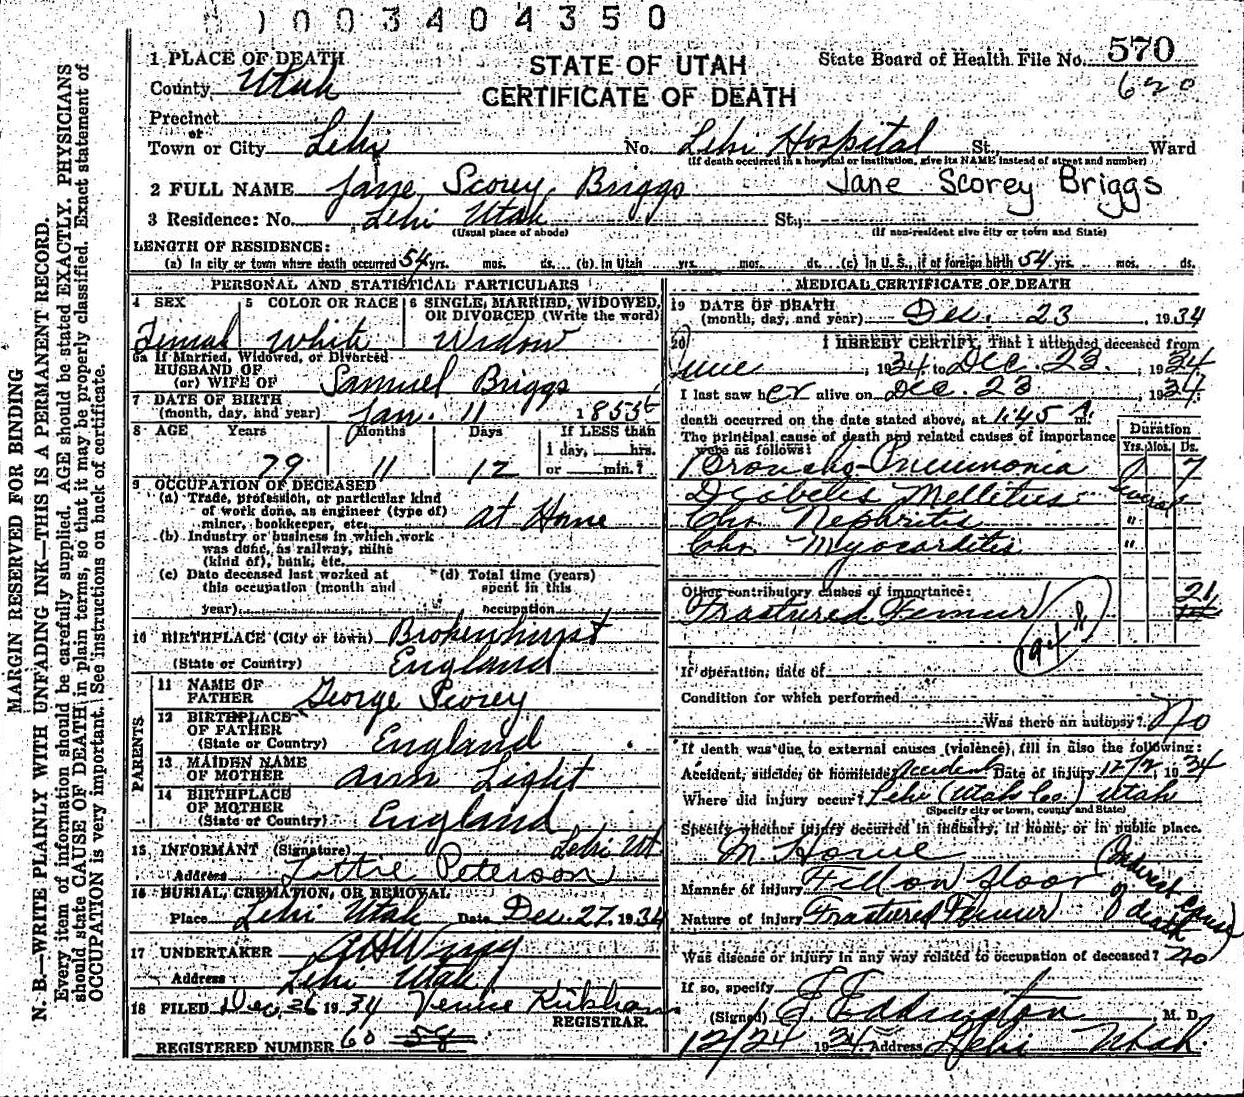 1003404350
1 PLACE OF DEATH
STATE OF UTAH
CERTIFICATE OF DEATH
State Board of Health File No. 570
620
County Utah
Precinct
or
Town or City Lehi No. Lehi Hospital St., Ward
(If death occurred in a hospital or institution, give its NAME instead of street and number)
2 FULL NAME Jane Scorey Briggs Jane Scorey Briggs
3 Residence: No. Lehi Utah St.,
(Usual place of abode) (If non-resident give city or town and State)
LENGTH OF RESIDENCE:
(a) In city or town where death occurred 54 yrs. mos. ds. (b) In Utah yrs. mos. ds. (c) In U. S., if of foreign birth 54 yrs. mos. ds.
PERSONAL AND STATISTICAL PARTICULARS
4 SEX 5 COLOR OR RACE 6 SINGLE, MARRIED, WIDOWED, OR DIVORCED (Write the word)
Femal White Widow
6a If Married, Widowed, or Divorced
HUSBAND OF
(or) WIFE OF Samuel Briggs
7 DATE OF BIRTH
(month, day, and year) Jan. 11 1855
8 AGE Years Months Days If LESS than
1 day, hrs.
79 11 12 or min.?
9 OCCUPATION OF DECEASED
(a) Trade, profession, or particular kind
of work done, as engineer (type of)
miner, bookkeeper, etc. at Home
(b) Industry or business in which work
was done, as railway, mine
(kind of), bank, etc.
(c) Date deceased last worked at
this occupation (month and
year)
(d) Total time (years)
spent in this
occupation
10 BIRTHPLACE (City or town) Brokenhurst
(State or Country) England
PARENTS
11 NAME OF
FATHER George Scorey
12 BIRTHPLACE
OF FATHER
(State or Country) England
13 MAIDEN NAME
OF MOTHER Ann Light
14 BIRTHPLACE
OF MOTHER
(State or Country) England
15 INFORMANT (Signature) Lehi Ut
Address Lottie Peterson
16 BURIAL, CREMATION, OR REMOVAL
Place Lehi Utah Date Dec. 27, 1934
17 UNDERTAKER
Address Lehi Utah
18 FILED Dec 26 1934 Venice
REGISTRAR.
REGISTERED NUMBER 60 58
MEDICAL CERTIFICATE OF DEATH
19 DATE OF DEATH
(month, day, and year) Dec. 23, 1934
20 I HEREBY CERTIFY, That I attended deceased from
June, 1934 to Dec. 23, 1934
I last saw her alive on Dec. 23, 1934
death occurred on the date stated above, at 1:45 A. m.
The principal cause of death and related causes of importance
were as follows:
Duration
Yrs. Mos. Ds.
Broncho-Pneumonia 7
Diabetes Mellitus Several
Chr. Nephritis "
Chr. Myocarditis "
Other contributory causes of importance:
Fractured Femur 21
194
If operation, date of
Condition for which performed
Was there an autopsy? No
If death was due to external causes (violence), fill in also the following:
Accident, suicide, or homicide Accident Date of injury 12/2, 1934
Where did injury occur? Lehi (Utah Co.) Utah
(Specify city or town, county and State)
Specify whether injury occurred in industry, in home, or in public place.
In Home
Manner of injury Fell on floor
Nature of injury Fractured Femur
(Indirect cause of death
Was disease or injury in any way related to occupation of deceased? No
If so, specify
(Signed) E. Eddington, M. D.
12/24 1934 Address Lehi Utah.
MARGIN RESERVED FOR BINDING
N. B.—WRITE PLAINLY WITH UNFADING INK—THIS IS A PERMANENT RECORD.
Every item of information should be carefully supplied. AGE should be stated EXACTLY. PHYSICIANS
should state CAUSE OF DEATH in plain terms, so that it may be properly classified. Exact statement of
OCCUPATION is very important. See instructions on back of certificate.